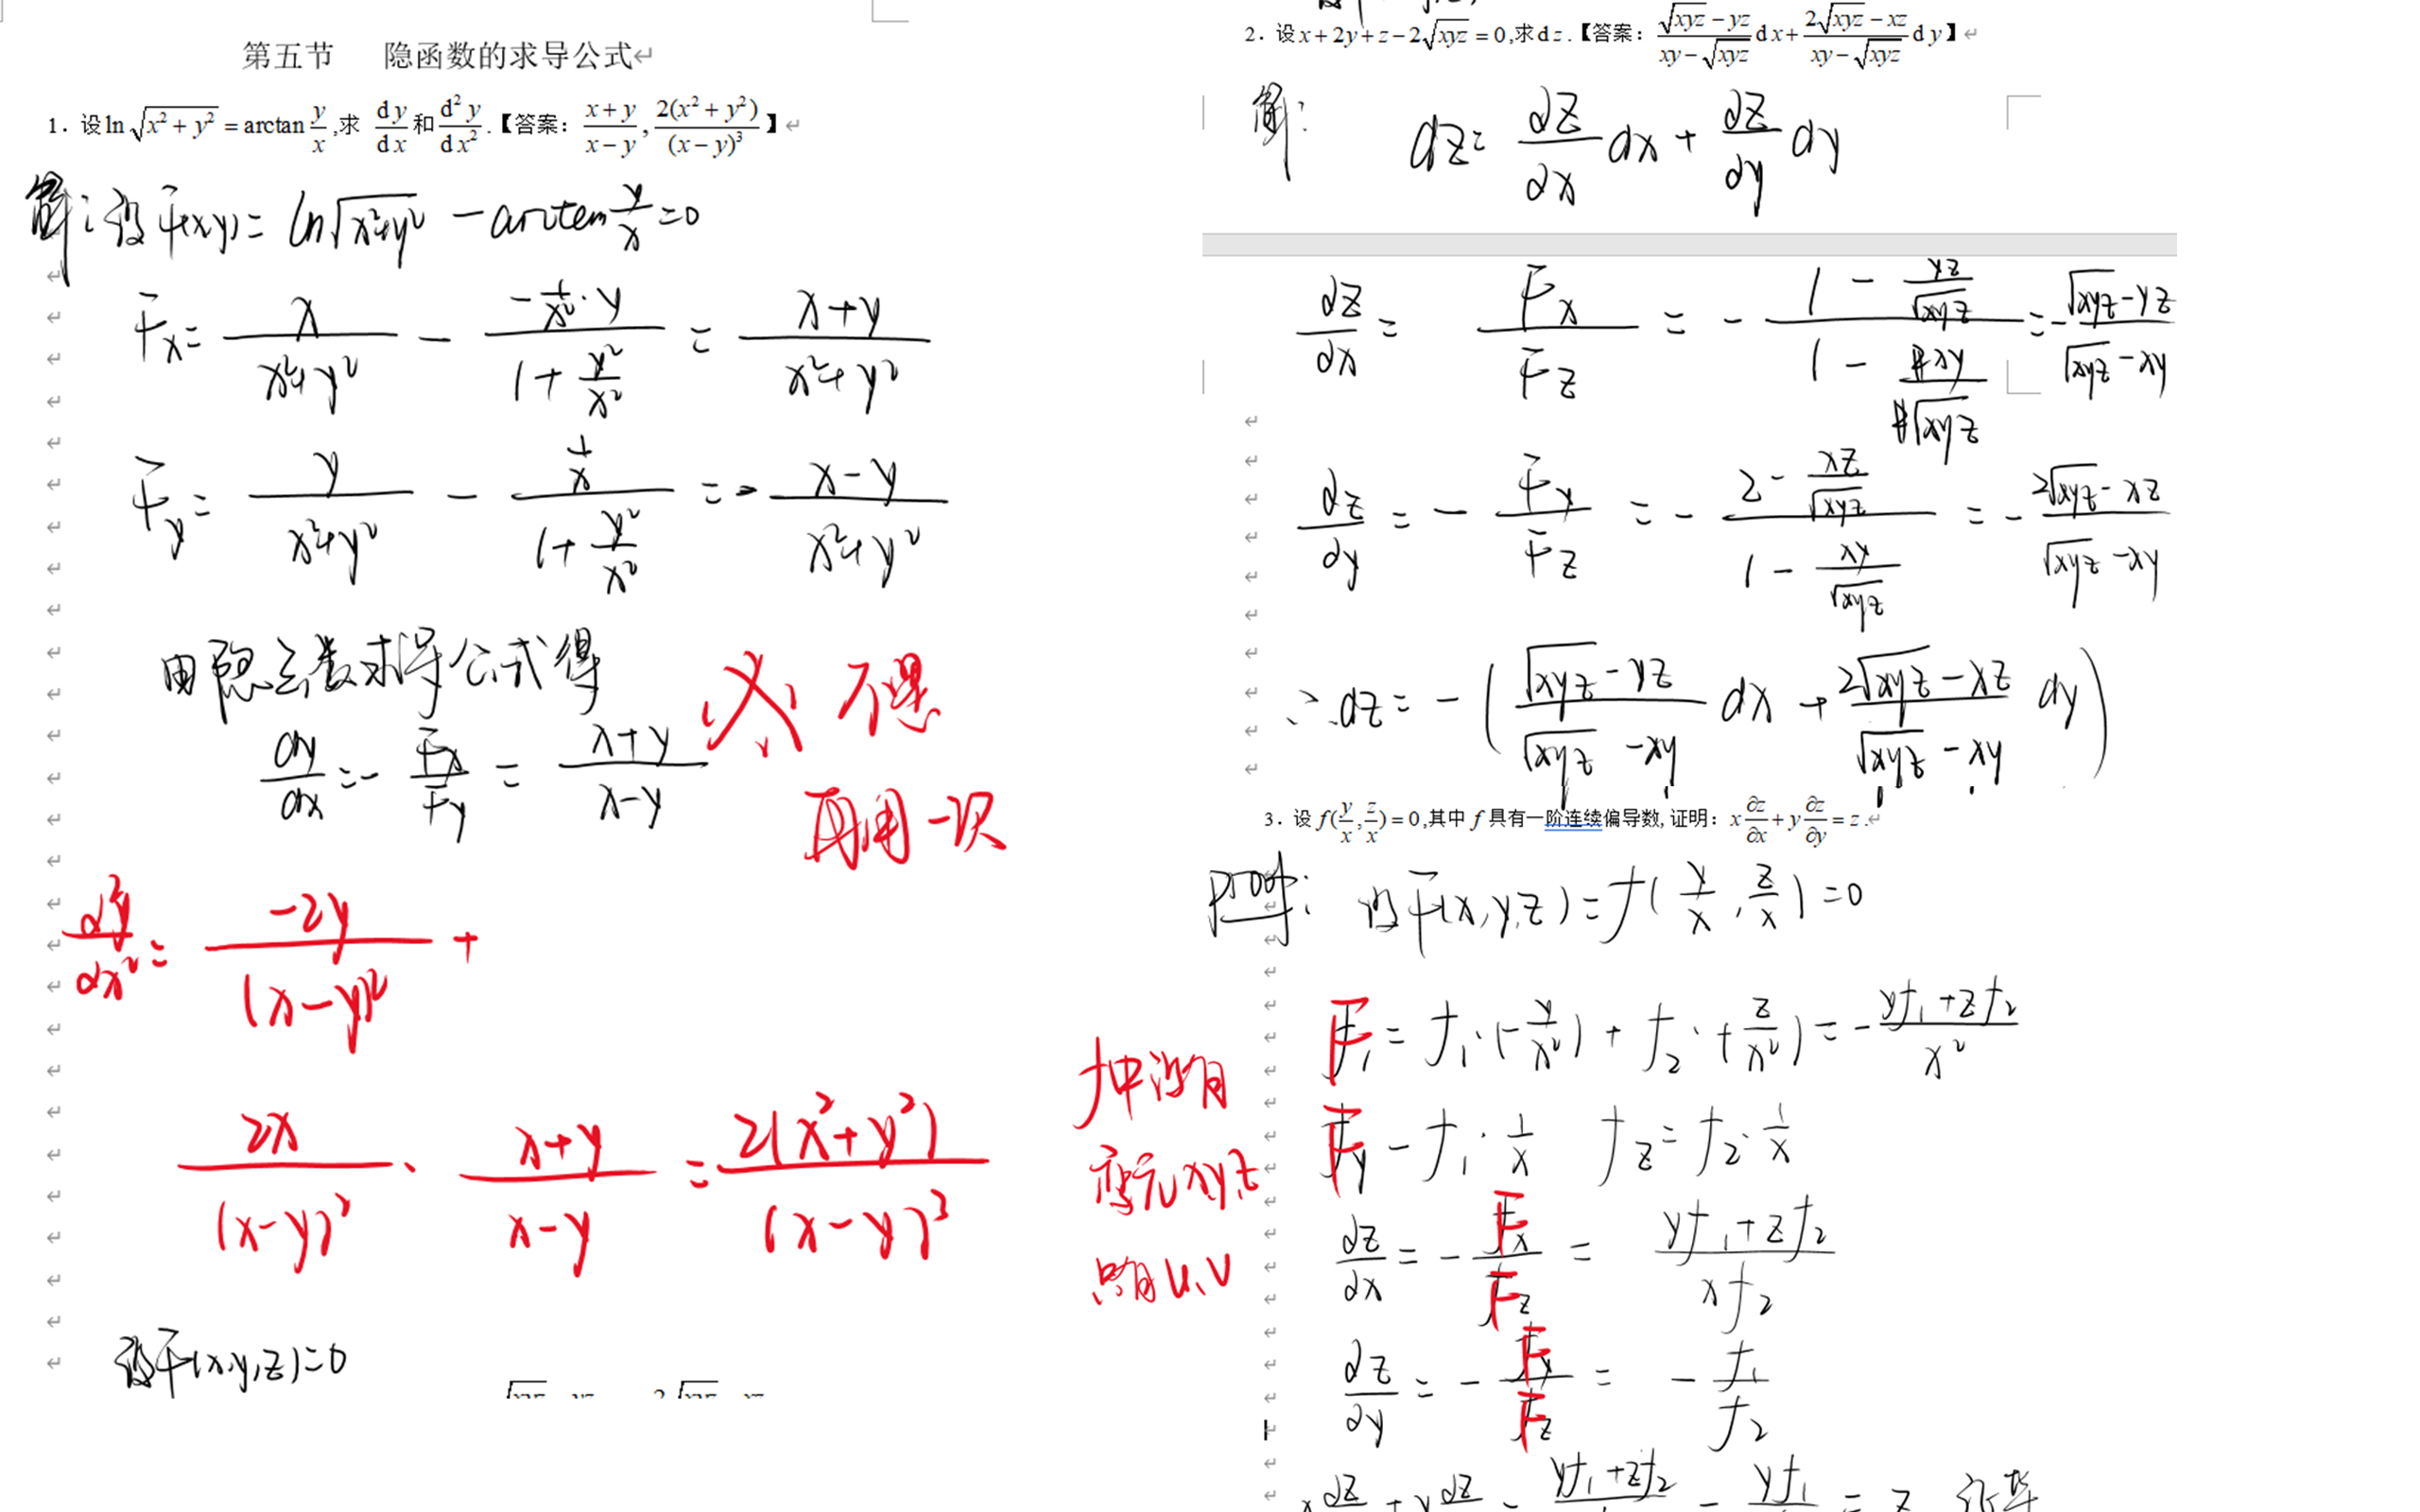 第五节 隐函数的求导公式
1. 设 ln√(x²+y²) = arctan y/x ,求 dy/dx 和 d²y/dx² .【答案: (x+y)/(x-y) , 2(x²+y²)/(x-y)³】
解:设F(x,y)= ln√(x²+y²) - arctan y/x =0
Fx= x/(x²+y²) - (-1/x²·y)/(1+y²/x²) = (x+y)/(x²+y²)
Fy= y/(x²+y²) - (1/x)/(1+y²/x²) = - (x-y)/(x²+y²)
由隐函数求导公式得
dy/dx = - Fx/Fy = (x+y)/(x-y)
不是
再用一次
d²y/dx² = -2y/(x-y)² +
2x/(x-y)² · (x+y)/(x-y) = 2(x²+y²)/(x-y)³
设F(x,y,z)=0
2. 设 x+2y+z-2√xyz=0,求dz.【答案: (√xyz-yz)/(xy-√xyz) dx+ (2√xyz-xz)/(xy-√xyz) dy】
解: dz= ∂z/∂x dx + ∂z/∂y dy
∂z/∂x = Fx/Fz = - (1 - yz/√xyz)/(1 - xy/√xyz) = - (√xyz-yz)/(√xyz-xy)
∂z/∂y = - Fy/Fz = - (2 - xz/√xyz)/(1 - xy/√xyz) = - (2√xyz-xz)/(√xyz-xy)
∴dz= - ( (√xyz-yz)/(√xyz-xy) dx + (2√xyz-xz)/(√xyz-xy) dy )
3. 设 f(y/x, z/x)=0,其中 f 具有一阶连续偏导数,证明: x ∂z/∂x + y ∂z/∂y = z.
Proof: 设F(x,y,z)=f( y/x , z/x )=0
= f₁·(-y/x²) + f₂·(-z/x²) = - (yf₁+zf₂)/x²
Fy = f₁·1/x fz= f₂·1/x
∂z/∂x = - Fx/Fz = (yf₁+zf₂)/(xf₂)
∂z/∂y = - Fy/Fz = - f₁/f₂
f中没有
变元x,y,z
只有u、v
x ∂z/∂x + y ∂z/∂y = (yf₁+zf₂) - yf₁ = z 证毕